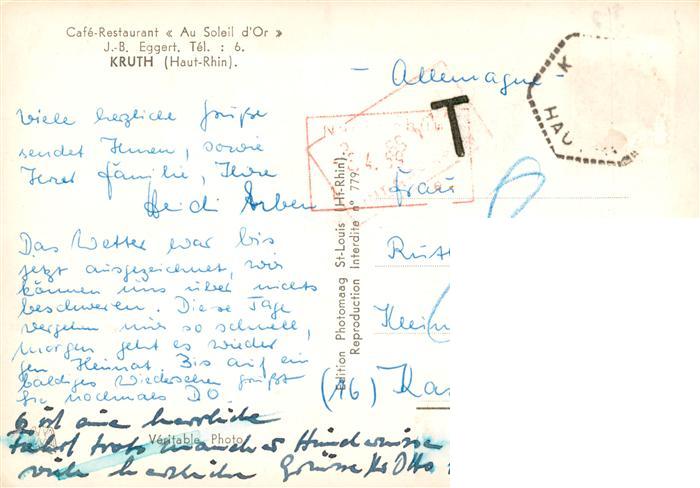 Café-Restaurant « Au Soleil d'Or »
J.-B. Eggert. Tél. : 6.
KRUTH (Haut-Rhin).
Viele herzliche Grüße
sendet Ihnen, sowie
Ihrer Familie, Ihre
Heidi Erben
Das Wetter war bis
jetzt ausgezeichnet, wir
können uns über nichts
beschweren. Diese Tage
vergehen mir so schnell,
morgen geht es wieder
gen Heimat. Bis auf ein
baldiges Wiedersehen grüßt
Sie nochmals DO.
Es ist eine herrliche
Fahrt trotz mancher Hindernisse
viele herzliche Grüsse Ks Otto
Véritable Photo
Edition Photomaag St-Louis (Ht-Rhin).
Reproduction Interdite n° 779
T
K
HAUT
- Allemagne -
Frau
Ruth
Klein
(16) Kas